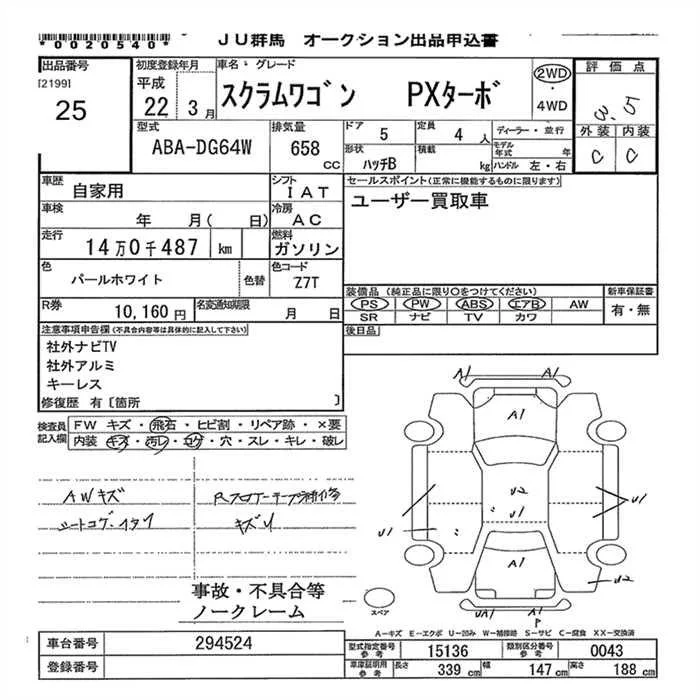 *0020540*
JU群馬 オークション出品申込書
出品番号
[2199]
25
初度登録年月
平成
22 3月
車名・グレード
スクラムワゴン PXターボ
2WD
・
4WD
評価点
3.5
外装 内装
C C
型式
ABA-DG64W
排気量
658 CC
ドア 5
定員 4 人
ディーラー・並行
形状 ハッチB
積載 kg
モデル年式 年
ハンドル 左・右
車歴 自家用
シフト IAT
車検 年 月( 日)
冷房 AC
走行 14万0千487 km
燃料 ガソリン
色 パールホワイト
色替
色コード Z7T
R券 10,160円
名変通知期限 月 日
セールスポイント(正常に機能するものに限ります)
ユーザー買取車
装備品(純正品に限り○をつけてください)
新車保証書
PS PW ABS エアB AW
SR ナビ TV カワ
有・無
後日品
注意事項申告欄(不具合内容等は具体的に記入して下さい)
社外ナビTV
社外アルミ
キーレス
修復歴 有〔箇所 〕
検査員記入欄
FW キズ・飛石・ヒビ割・リペア跡・×要
内装・キズ・汚レ・コゲ・穴・スレ・キレ・破レ
AWキズ
シートコゲ・イタミ
キズU
事故・不具合等
ノークレーム
A1 A1
A1
U2
U1
U1
U1
A1
U2
UA1 A1
P
スペア
A-キズ E-エクボ U-凹み W-補修跡 S-サビ C-腐食 XX-交換済
車台番号 294524
登録番号
型式指定番号参考 15136
類別区分番号参考 0043
車庫証明用参考 長さ 339 cm 幅 147 cm 高さ 188 cm